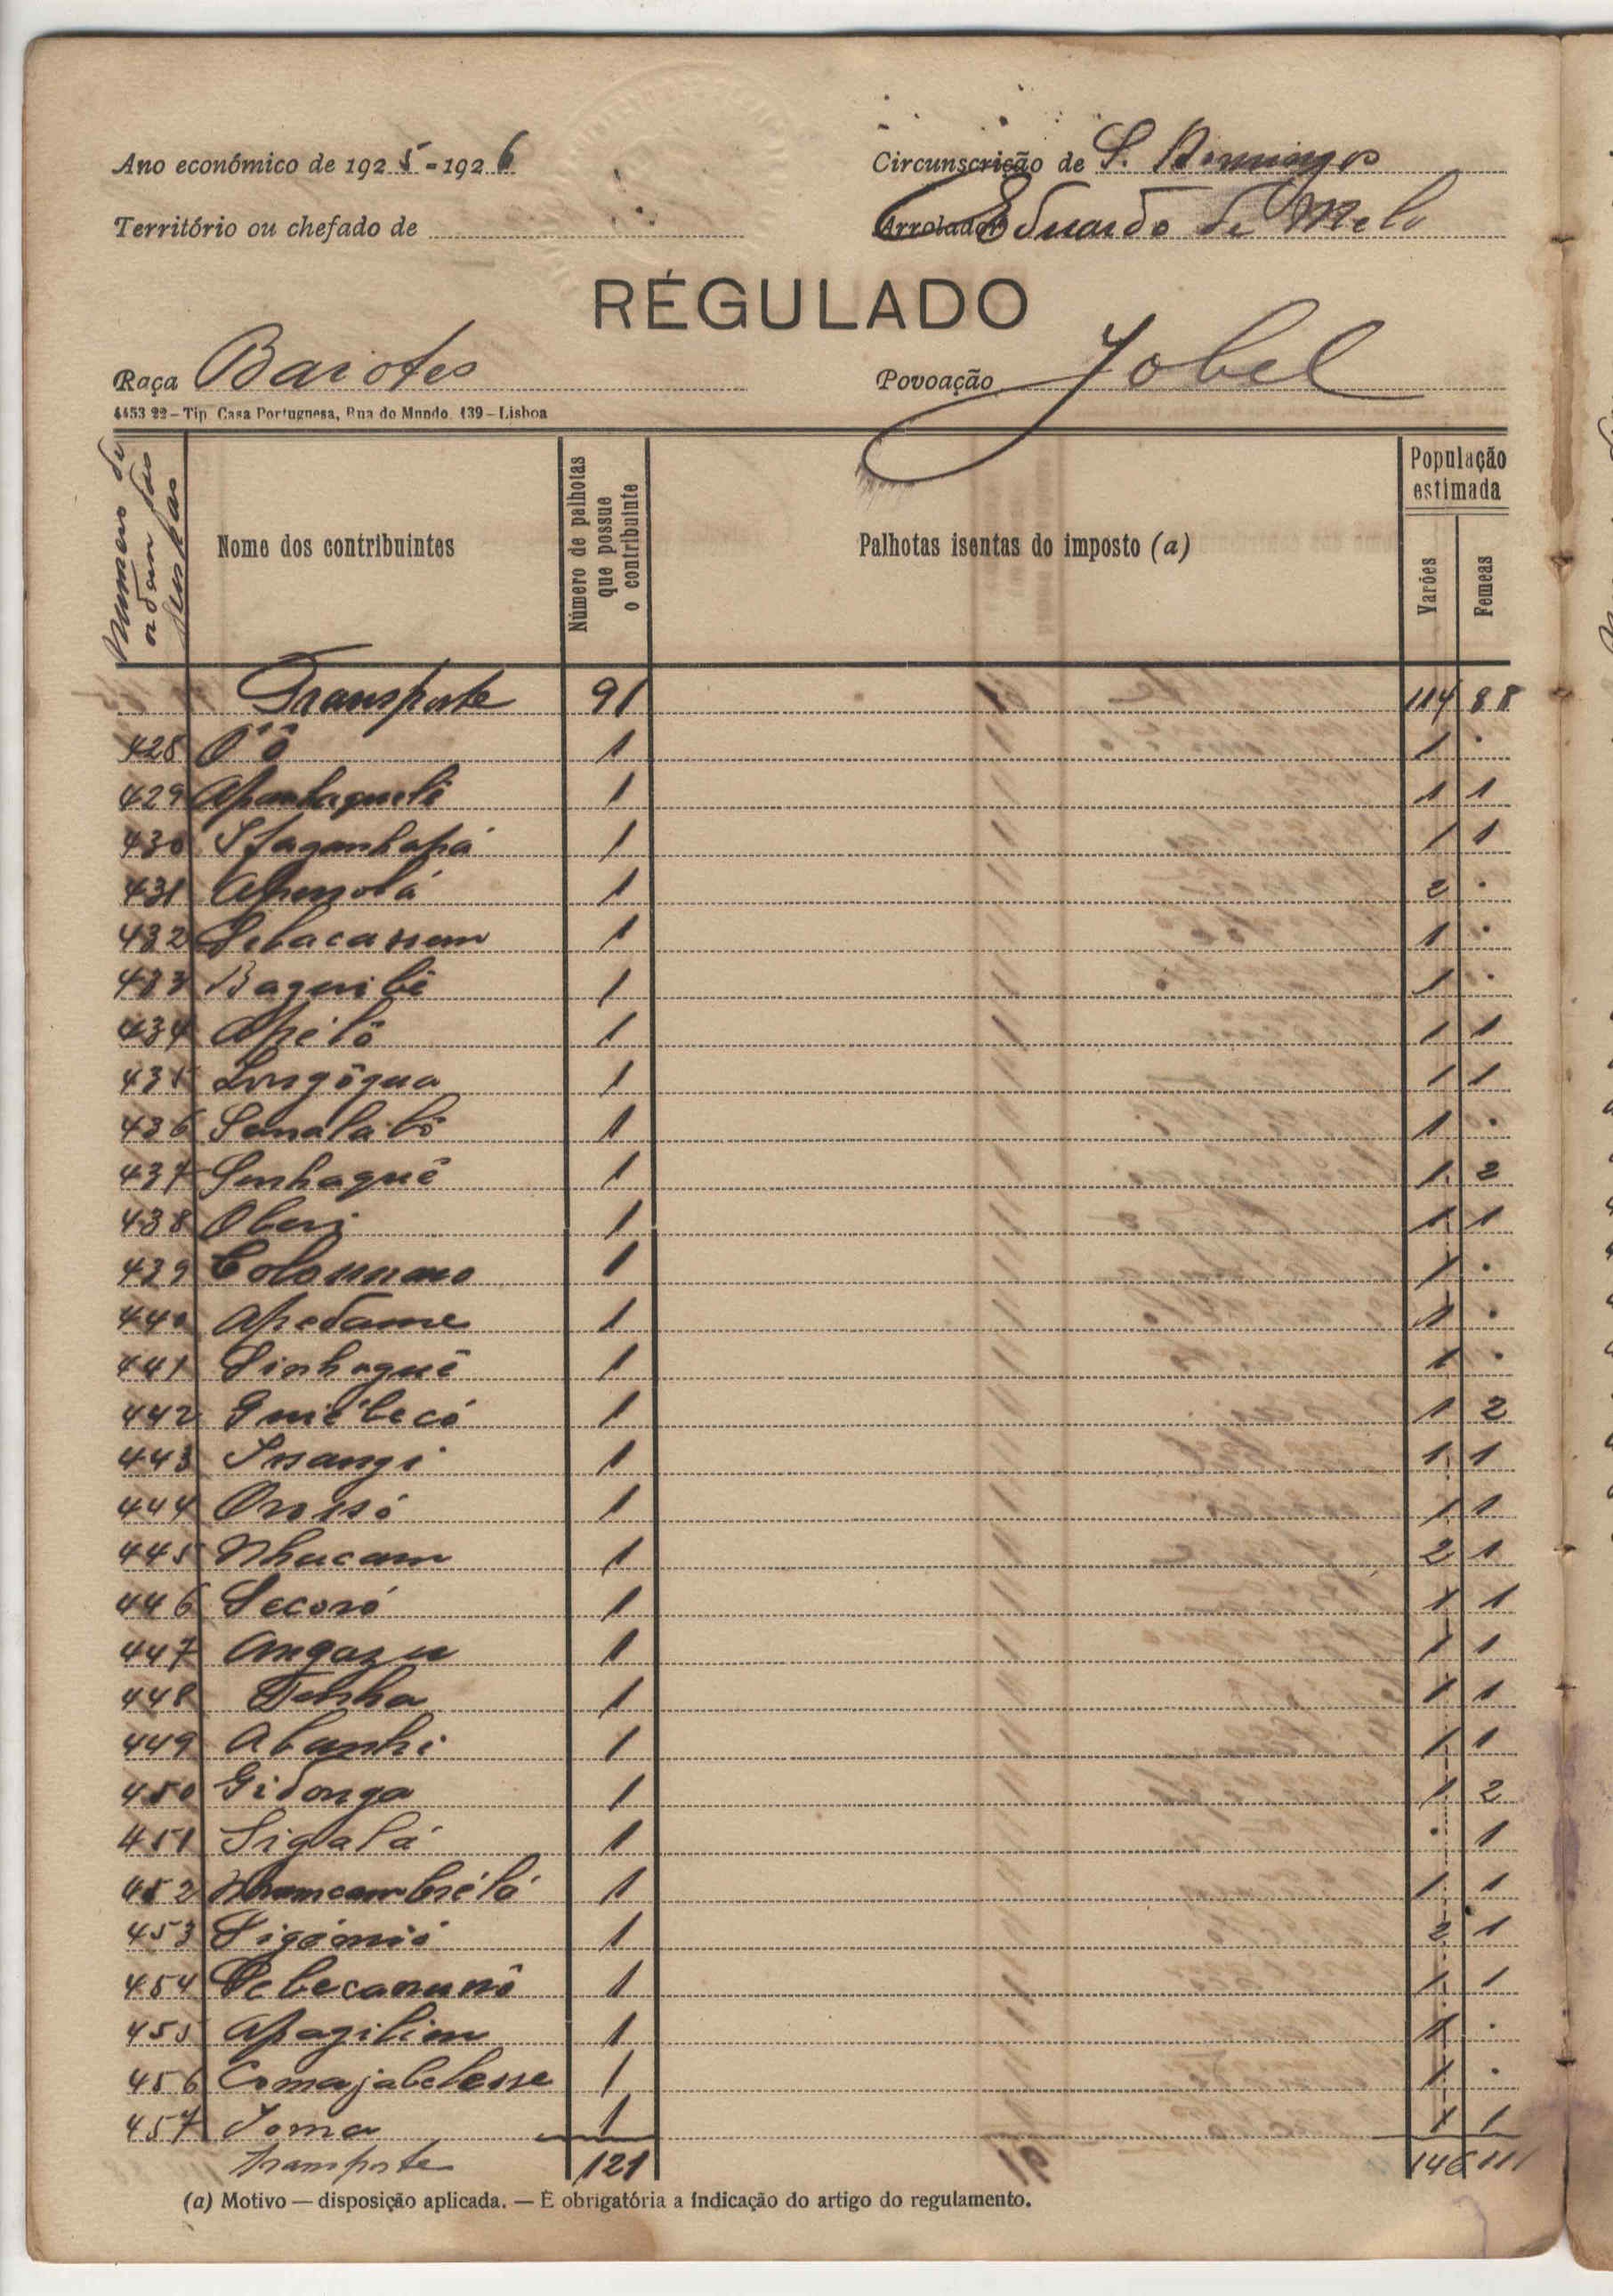 Ano económico de 1925-1926
Circunscrição de S. Domingos
Território ou chefado de
Arrolador Eduardo de Melo
RÉGULADO
Raça Baiotes
Povoação Jobel
4453 22 – Tip. Casa Portuguesa, Rua do Mundo, 139 – Lisboa
Numero de ordem das
Nome dos contribuintes
Número de palhotas que possue o contribuinte
Palhotas isentas do imposto (a)
População estimada
Varões
Femeas
Transporte 91 114 88
428 Ô ô 1 1 .
429 1 1 1
430 1 1 1
431 1 2 .
432 1 1 .
433 Baguibê 1 1 .
434 Apélô 1 1 1
435 Longôgua 1 1 1
436 Senalabô 1 1 .
437 Senhaguê 1 1 2
438 1 1 1
439 1 1 .
440 Apedame 1 1 .
441 Sinhaguê 1 1 .
442 Guiébecó 1 1 2
443 1 1 1
444 Orossó 1 1 1
445 Nhucam 1 2 1
446 Secoró 1 1 1
447 Angazu 1 1 1
448 Tenha 1 1 1
449 Abanhi 1 1 1
450 Gidonga 1 1 2
451 Sigalá 1 . 1
452 1 1 1
453 1 2 1
454 1 1 1
455 Apagiliem 1 1 .
456 Comajabelesse 1 1 .
457 Joma 1 1 1
Transporte 121 146 111
(a) Motivo — disposição aplicada. — É obrigatória a indicação do artigo do regulamento.